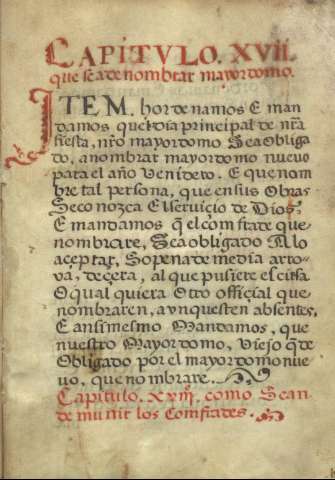 CAPITVLO. XVII.
que se a de nombrar mayordomo.
ITEM. hordenamos E man
damos que el dia principal de nr̃a
fiesta, nr̃o mayordomo Sea obliga
do, a nombrar mayordomo nuevo
para el año Venidero. E que nom
bre tal persona, que en sus Obras
Se conozca El servicio de Dios,
E mandamos q̃ el comfrade que
nombrare, Sea obligado A lo
aceptar, So pena de media arro
va, de çera, al que pusiere escusa
O qual quiera Otro offiçial que
nombraren, a vnque esten absentes,
E ansimesmo Mandamos, que
nuestro Mayordomo, Viejo q̃de
Obligado por el mayordomo nue
vo, que nombrare.
Capitulo. XVIII. como Sean
de munir los Comfrades.